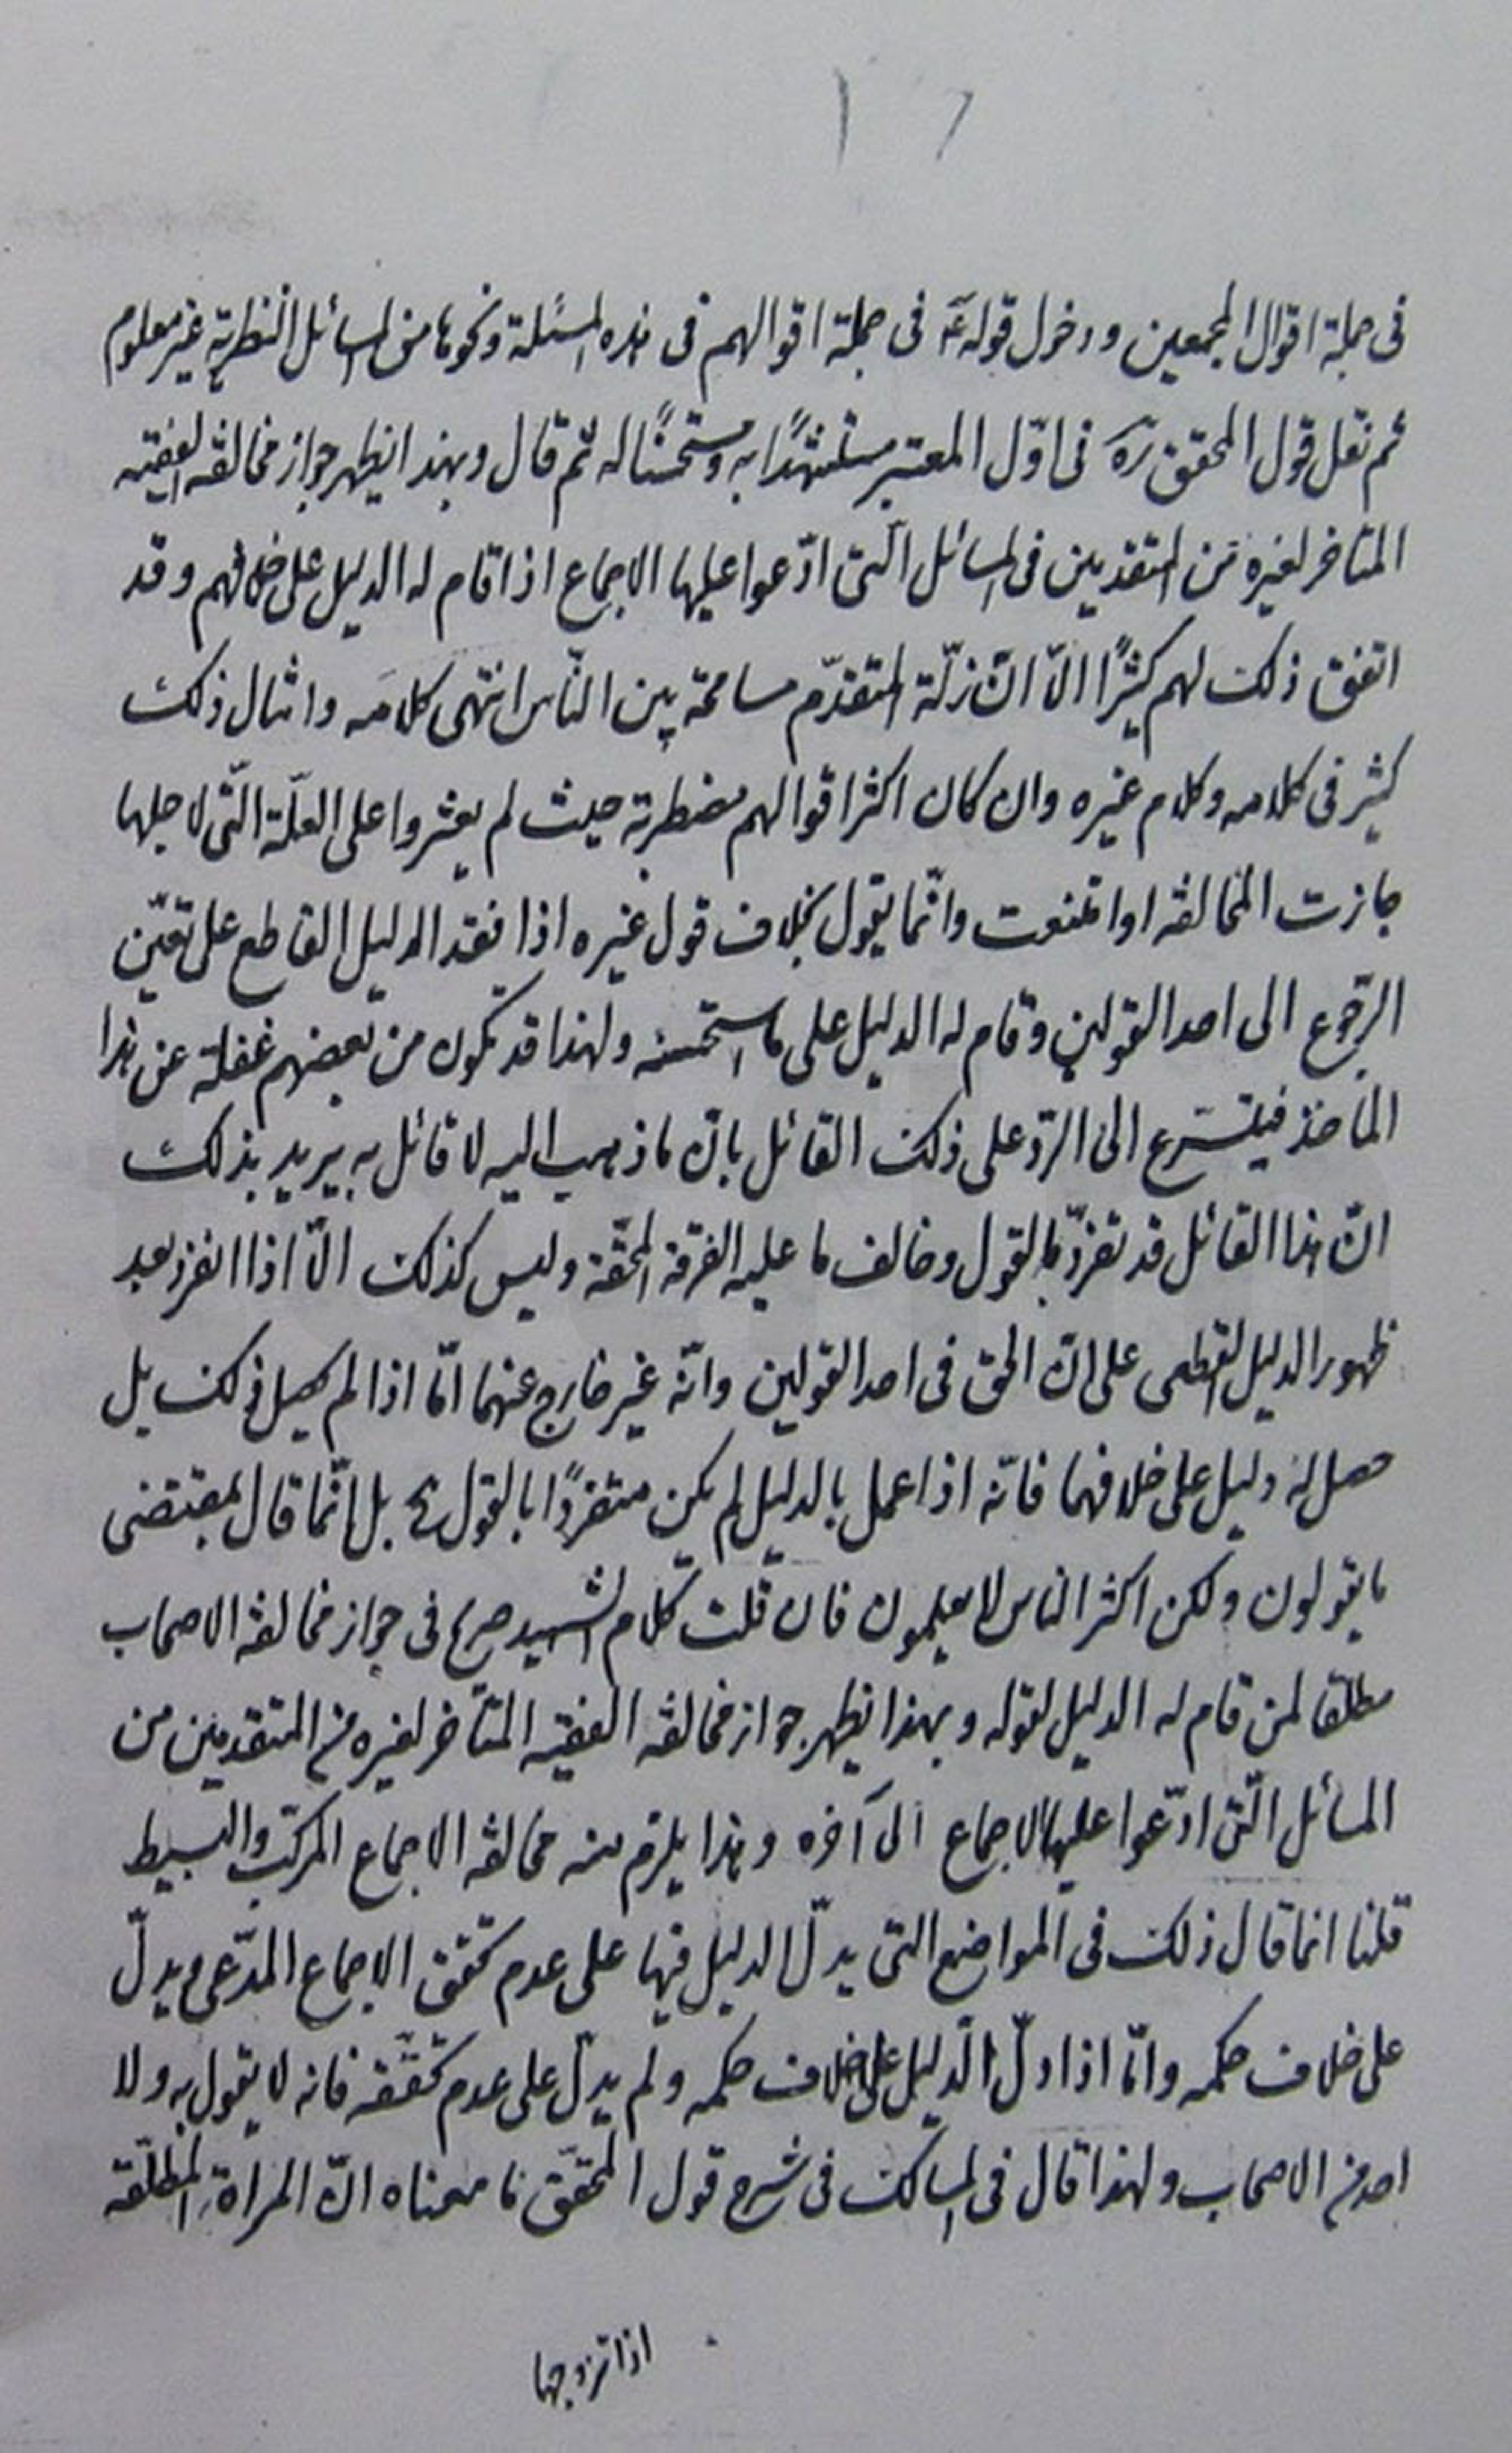 فى جملة اقوال المجمعين ودخول قوله ع فى جملة اقوالهم فى هذه المسئلة ونحوها من المسائل النظرية غير معلوم
ثم نقل قول المحقق ره فى اوّل المعتبر مستشهدًا به ومستحسنًا له ثم قال وبهذا يظهر جواز مخالفه الفقيه
المتاخر لغيره من المتقدمين فى المسائل الّتى ادّعوا عليها الاجماع اذا قام له الدليل على خلافهم وقد
اتفق ذلك لهم كثيرًا الّا انّ زلّة المتقدّم مسامحة بين النّاس انتهى كلامه وامثال ذلك
كثير فى كلامه وكلام غيره وان كان اكثر اقوالهم مضطربة حيث لم يعثروا على العلّة الّتى لاجلها
جازت المخالفه او امتنعت وانّما يقول بخلاف قول غيره اذا فقد الدليل القاطع على تعيّن
الرّجوع الى احد القولين وقام له الدليل على ما استحسنه ولهذا قد تكون من بعضهم غفلة عن هذا
المأخذ فيتسرّع الى الرّد على ذلك القائل بانّ ما ذهب اليه لا قائل به يريد بذلك
انّ هذا القائل قد تفرّد بالقول وخالف ما عليه الفرقة المحقّة وليس كذلك الّا اذا انفرد بعد
ظهور الدليل القطعى على انّ الحق فى احد القولين وانّه غير خارج عنهما امّا اذا لم يحصل ذلك بل
حصل له دليل على خلافهما فانّه اذا عمل بالدليل لم يكن متفردًا بالقول ح بل انّما قال بمقتضى
ما يقولون ولكن اكثر الناس لا يعلمون فان قلت كلام الشهيد صريح فى جواز مخالفه الاصحاب
مطلقا لمن قام له الدليل لقوله وبهذا يظهر جواز مخالفه الفقيه المتأخر لغيره من المتقدمين من
المسائل الّتى ادّعوا عليها الاجماع الى آخره وهذا يلزم منه مخالفه الاجماع المركّب والبسيط
قلنا انما قال ذلك فى المواضع التى يدلّ الدليل فيها على عدم تحقق الاجماع المدّعى ويدلّ
على خلاف حكمه وامّا اذا دلّ الدّليل على خلاف حكمه ولم يدلّ على عدم تحقّقه فانه لا يقول به ولا
احد من الاصحاب ولهذا قال فى المسالك فى شرح قول المحقّق ما معناه انّ المراة المطلّقه
اذا تزوجها